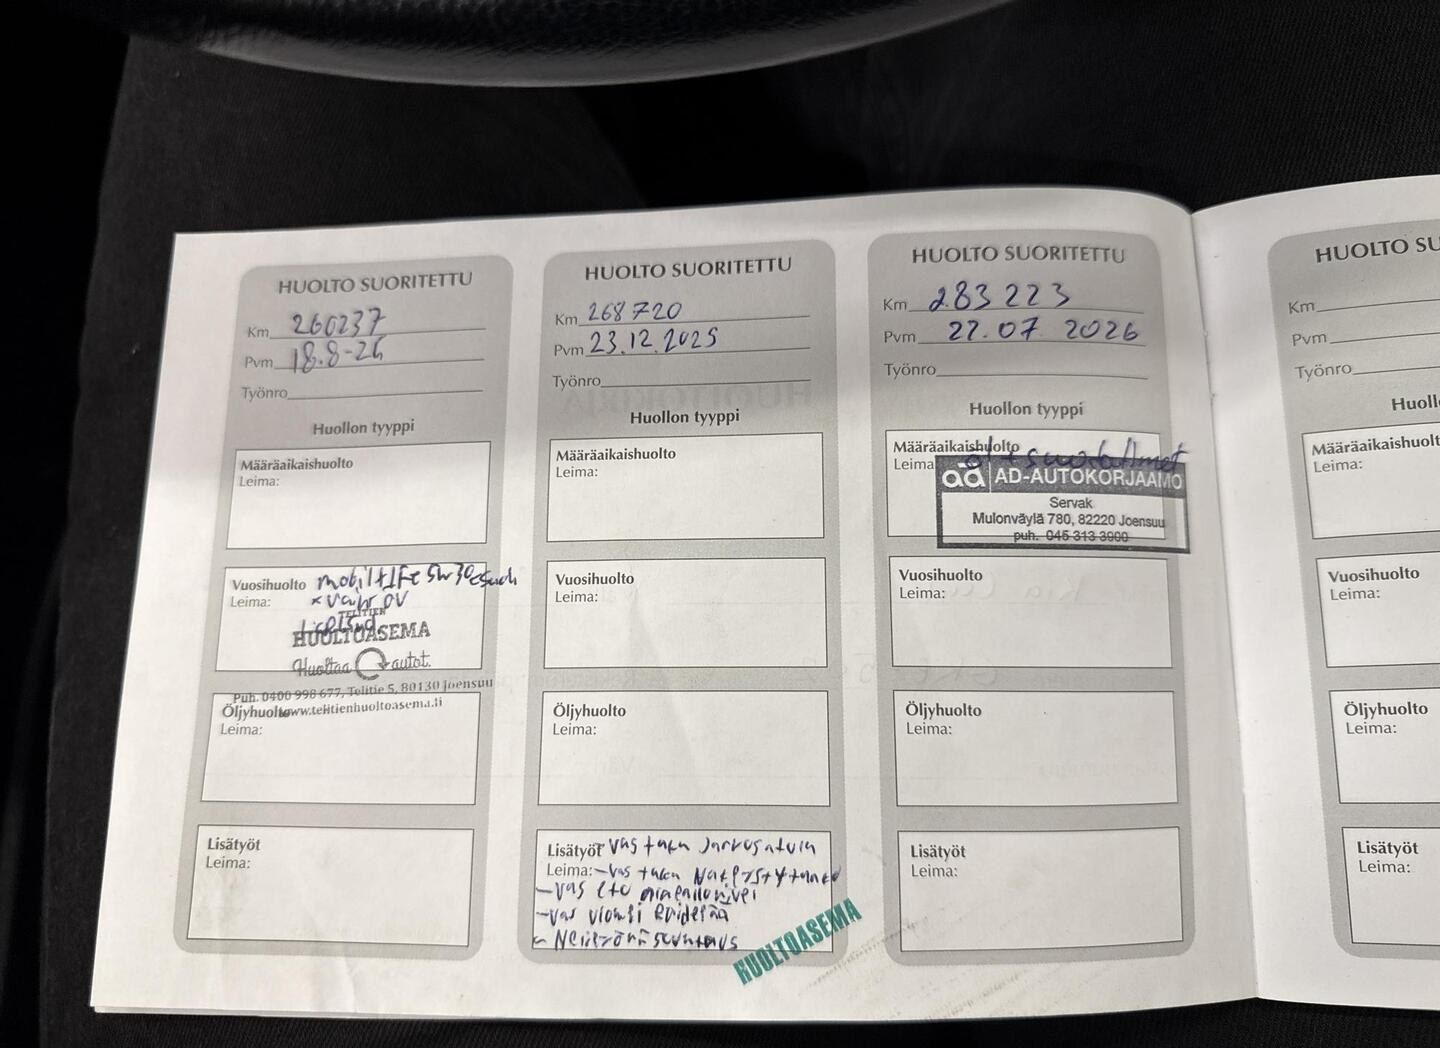 HUOLTO SUORITETTU
Km 260237
Pvm 18.8-25
Työnro
Huollon tyyppi
Määräaikaishuolto
Leima:
Vuosihuolto mobil 1 5w30
Leima:
TELITIEN
HUOLTOASEMA
Huoltaa autot.
Puh. 0400 998 677, Telitie 5, 80130 Joensuu
www.telitienhuoltoasema.fi
Öljyhuolto
Leima:
Lisätyöt
Leima:
HUOLTO SUORITETTU
Km 268720
Pvm 23.12.2025
Työnro
Huollon tyyppi
Määräaikaishuolto
Leima:
Vuosihuolto
Leima:
Öljyhuolto
Leima:
Lisätyöt vas taka Jarrusatula
Leima: -vas taka
-vas etu
-vas
HUOLTOASEMA
HUOLTO SUORITETTU
Km 283 223
Pvm 22.07 2026
Työnro
Huollon tyyppi
Määräaikaishuolto
Leima
öl + suodattimet
ad AD-AUTOKORJAAMO
Servak
Mulonväylä 780, 82220 Joensuu
puh. 045 313 3900
Vuosihuolto
Leima:
Öljyhuolto
Leima:
Lisätyöt
Leima:
HUOLTO SU
Km
Pvm
Työnro
Huoll
Määräaikaishuolt
Leima:
Vuosihuolto
Leima:
Öljyhuolto
Leima:
Lisätyöt
Leima: